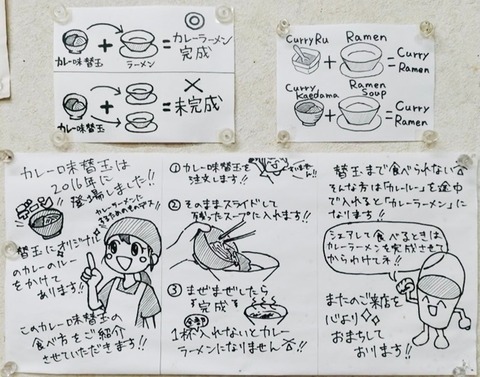 カレー味替玉
+
ラーメン
=
◎
カレーラーメン
完成
カレー味替玉
+
=
×
未完成
CurryRu
+
Ramen
=
Curry
Ramen
Curry
Kaedama
+
Ramen
Soup
=
Curry
Ramen
カレー味替玉は
2016年に
登場しました!!
カレーラーメンに
するためのモノデス!
替玉にオリジナル
のカレーのルー
をかけて
あります!!
このカレー味替玉の
食べ方をご紹介
させていただきます!!
① カレー味替玉を
注文します!!
② そのままスライドして
残ったスープに入れます!!
③ まぜまぜしたら
完成
全部
1杯入れないとカレー
ラーメンになりません!!
替玉まで食べられない
そんな方は「カレールー」を途中
で入れると「カレーラーメン」に
なります!!
シェアして食べるときは
カレーラーメンを完成させて
からわけてネ!!
またのご来店を
心より
おまちして
おります!!